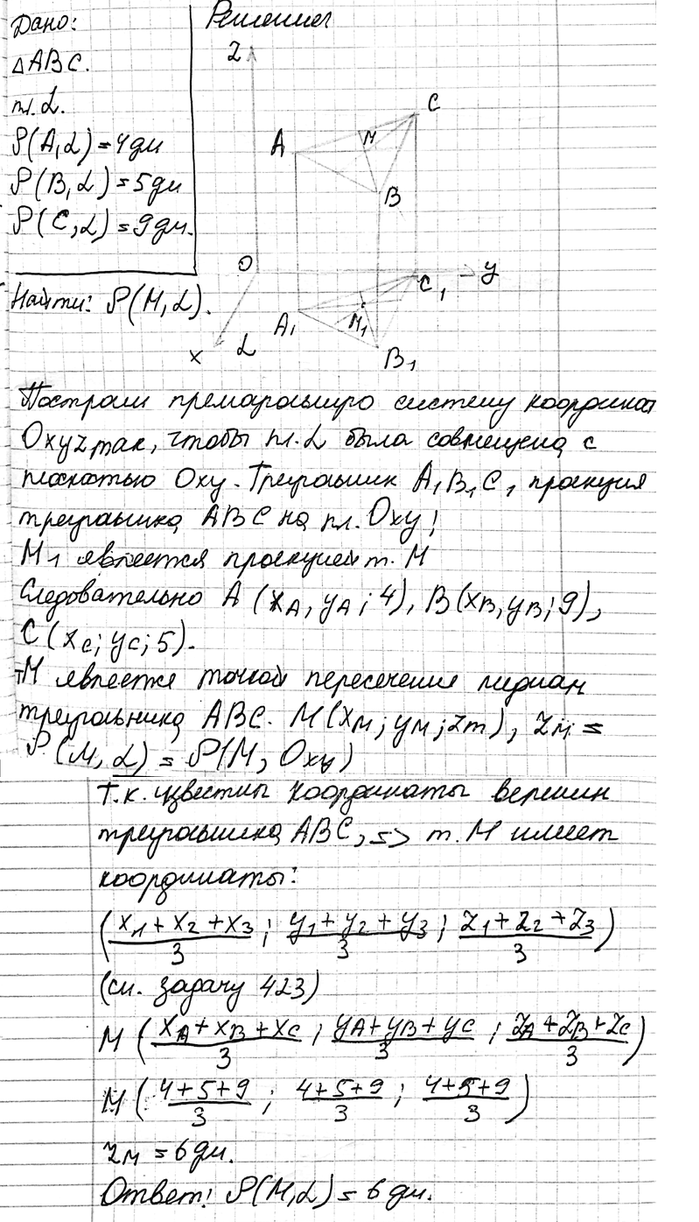 Дано:
Решение
△ABC.
пл. α.
ρ(A,α)=4дм
ρ(B,α)=5дм
ρ(C,α)=9дм.
Найти: ρ(M,α).
Z
A
M
C
B
O
C₁
y
A₁
M₁
B₁
x
α
Построим прямоугольную систему координат
Oxyz так, чтобы пл. α была совмещена с
плоскостью Oxy. Треугольник A₁B₁C₁ проекция
треугольника ABC на пл. Oxy!
M₁ является проекцией т. M
Следовательно A (xA, yA; 4), B(xB, yB; 9),
C(xC; yC; 5).
тM является точкой пересечение медиан
треугольника ABC. M(xM; yM; zm), zM =
ρ(M, α) = ρ(M, Oxy)
Т.к. известны координаты вершин
треугольника ABC, => т. M имеет
координаты:
((x₁+x₂+x₃)/3 ; (y₁+y₂+y₃)/3 ; (z₁+z₂+z₃)/3)
(см. задачу 423)
M ((xA+xB+xC)/3 ; (yA+yB+yC)/3 ; (zA+zB+zC)/3)
M ((4+5+9)/3 ; (4+5+9)/3 ; (4+5+9)/3)
zM = 6дм.
Ответ: ρ(M,α) = 6дм.